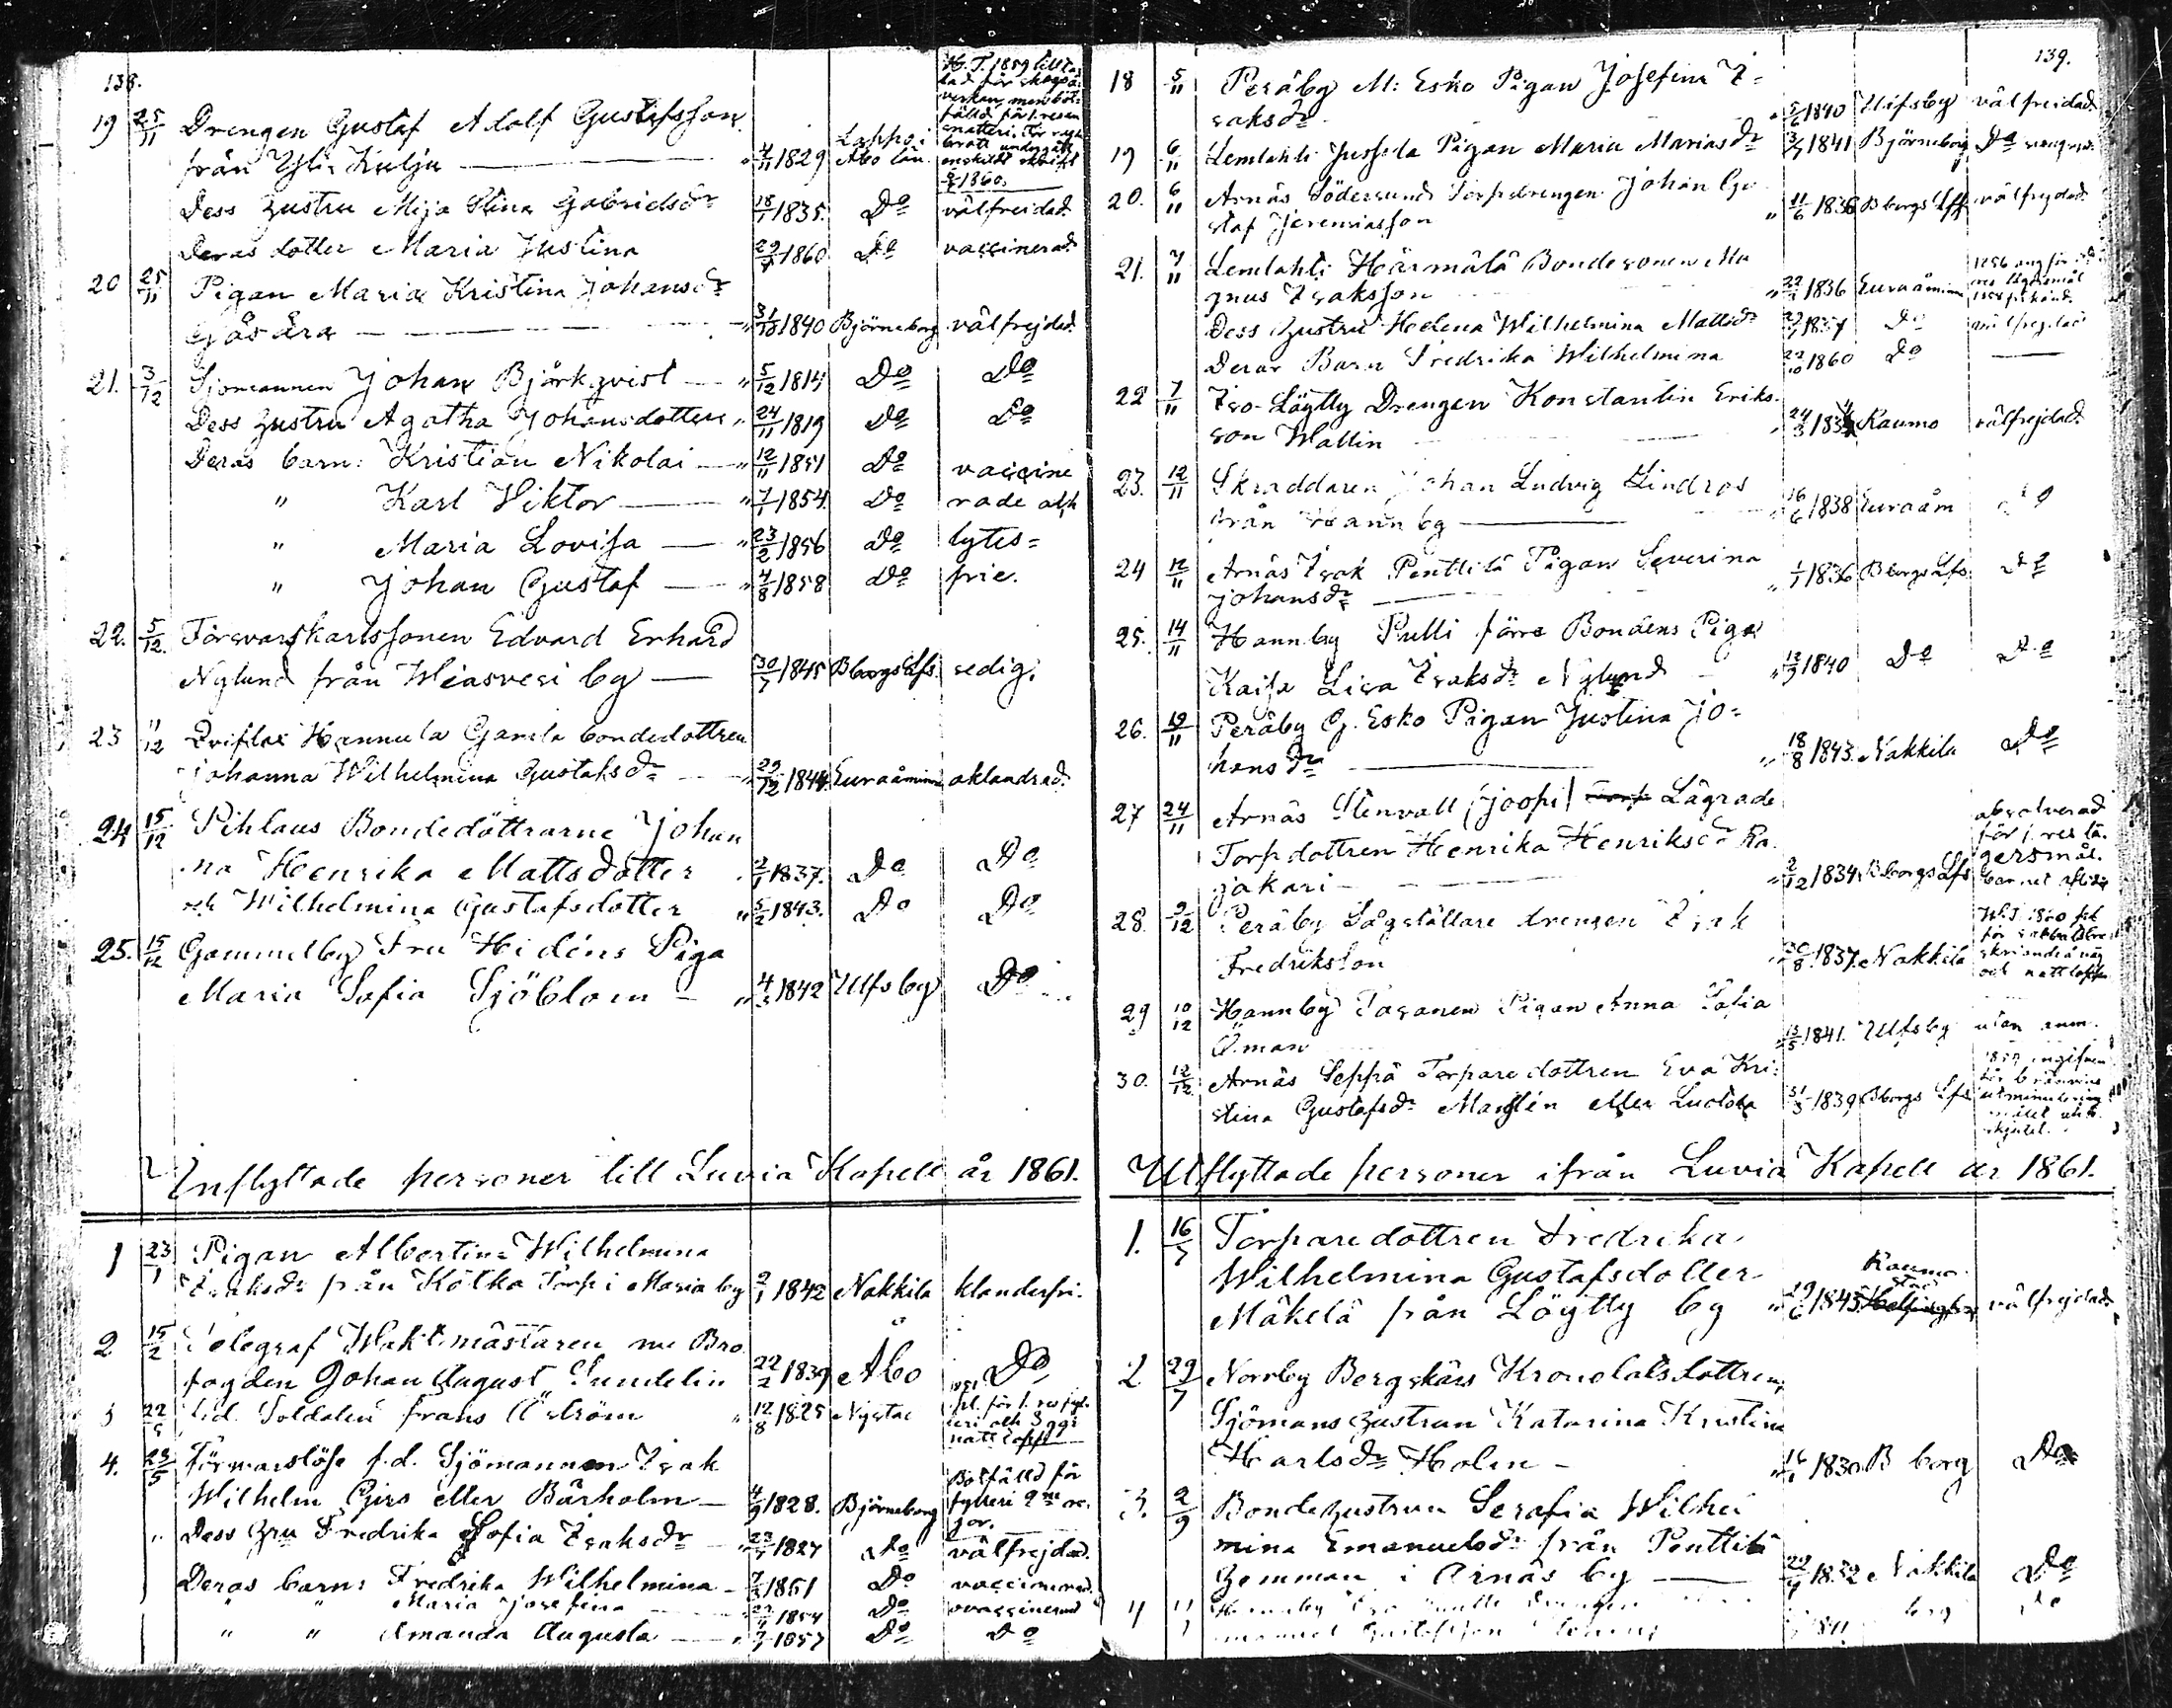 138.
19 25/11 Drengen Gustaf Adolf Gustafsson
från Yli Kulju — 4/11 1829 Lappo i Åbo län
H. T. 1859 tilltalad för
verkan, men böt-
fälld för 1. resan
snatteri, för
undergått
enskildt skrift
1860.
Dess hustru Maja Stina Gabrielsdr 18/1 1835. Do välfrejdad.
Deras dotter Maria Justina 29/4 1860 Do vaccinerad
20 25/11 Pigan Maria Kristina Johansdr
Gåsöra — 31/10 1840 Björneborg välfrejdad.
21. 3/12 Sjömannen Johan Björkqvist — " 5/12 1814 Do Do
Dess hustru Agatha Johansdotter " 24/11 1819 Do Do
Deras barn: Kristian Nikolai — " 12/11 1851 Do vaccine
" Karl Viktor — " 7/1 1854. Do rade och
" Maria Lovisa — " 23/2 1856 Do lytes=
" Johan Gustaf — 4/8 1858 Do frie.
22. 5/12. Försvarskarlssonen Edvard Erhard
Nylund från Wiasvesi by — 30/7 1845 Bborgs Lfs. sedig.
23 11/12 Hannula Gamla bondedottren
Johanna Wilhelmina Gustafsdr — 29/12 1844 Euraåminne oklandrad.
24 15/12 Pihlaus Bondedöttrarne Johan
na Henrika Mattsdotter 2/1 1837. Do Do
och Wilhelmina Gustafsdotter " 5/2 1843. Do Do
25. 15/12 Gammelby Fru Hidéns Piga
Maria Sofia Sjöblom — " 4/3 1842 Ulfsby Do
Inflyttade personer till Luvia Kapell år 1861.
1 23/1 Pigan Albertina Wilhelmina
Isaksdr från Kotka Torp i Maria by 2/1 1842 Nakkila klanderfri.
2 15/2 Telegraf Waktmästaren nu Bro
fogden Johan August Sundelin 22/2 1839 Åbo Do
3 22/5 f.d. Soldaten Frans Åström " 12/8 1825 Nystad
1851 pl. för 1. res fyl-
leri och 3 ggr
nattlopp
4. 23/5 Försvarslöse f.d. Sjömannen Isak
Wilhelm Girs eller Bärholm — 4/9 1828. Björneborg
Botfälld för
fylleri 2ne re-
sor.
" Dess Hru Fredrika Sofia Isaksdr 23/7 1827 Do välfrejdad.
Deras barn: Fredrika Wilhelmina — 7/2 1851 Do vaccinerad
" " Maria Josefina 1854 Do ovaccinerad
" " Amanda Augusta — " 1857 Do Do
139.
18 5/11 Peräby M: Esko Pigan Josefina I-
saksdr " 5/6 1840 Ulfsby välfrejdad.
19 6/11 Lemlahti Jussila Pigan Maria Mariasdr 3/7 1841 Björneborg Do
20. 6/11 Arnäs Södersund Torpdrengen Johan Gu
staf Jeremiasson " 11/6 1836 Bborgs Lfs välfrejdad.
21. 7/11 Lemlahti Härmälä Bondesonen Ma
gnus Isaksson " 22/1 1836 Euraåminne
Dess Hustru Helena Wilhelmina Mattsdr 1837 Do välfrejdad
Deras Barn Fredrika Wilhelmina 22/10 1860 Do —
22 7/11 Iso-Löytty Drengen Konstantin Eriks-
son Wallin — 24/3 1834 Raumo välfrejdad.
23. 12/11 Skraddaren Johan Ludvig Lindros
från Hannby — 16/6 1838 Euraåm Do
24 12/11 Arnäs Isak Penttilä Pigan Severina
Johansdr — " 1/1 1836 Bborgs Lfs. Do
25. 14/11 Hannby Pulli förre Bondens Piga
Kaisa Lisa Isaksdr Nylund — " 13/9 1840 Do Do
26. 19/11 Peräby G. Esko Pigan Justina Jo-
hansdr — " 18/8 1843. Nakkila Do
27 24/11 Arnäs Stenvall /Joopi/ Lägrade
Torpdottren Henrika Henriksdr Ra
jakari — " 2/12 1834. Bborgs Lfs
absolverad
för 1. res lä-
gersmål.
barnet
28. 9/12 Peräby Sågställare drengen Isak
Fredriksson 30/8 1837. Nakkila
W.T. 1860
för sabbatsbrott
och nattlopp
29 10/12 Hannby Pasanen Pigan Anna Sofia
Öman 15/5 1841. Ulfsby utan anm.
30. 12/12 Arnäs Seppä Torparedottren Eva Kri-
stina Gustafsdr Marslén eller Luotola 31/3 1839 Bborgs Lfs
1859 angifven
för bränvins
utminutering
målet
Utflyttade personer ifrån Luvia Kapell år 1861.
1. 16/7 Torparedottren Fredrika
Wilhelmina Gustafsdotter
Mäkelä från Löytty by " 19/6 1845. Raumo stad Helsingfors välfrejdad.
2 29/7 Norrby Bergskärs Kronolatsdottren,
Sjömans hustrun Katarina Kristina
Karlsdr Holm — 1830 B borg Do
3. 2/9 Bondehustrun Serafia Wilhel
mina Emanuelsdr från Penttilä
hemman i Arnäs by — 20/4 1832 Nakkila Do
4 Hannby
Gustafsson